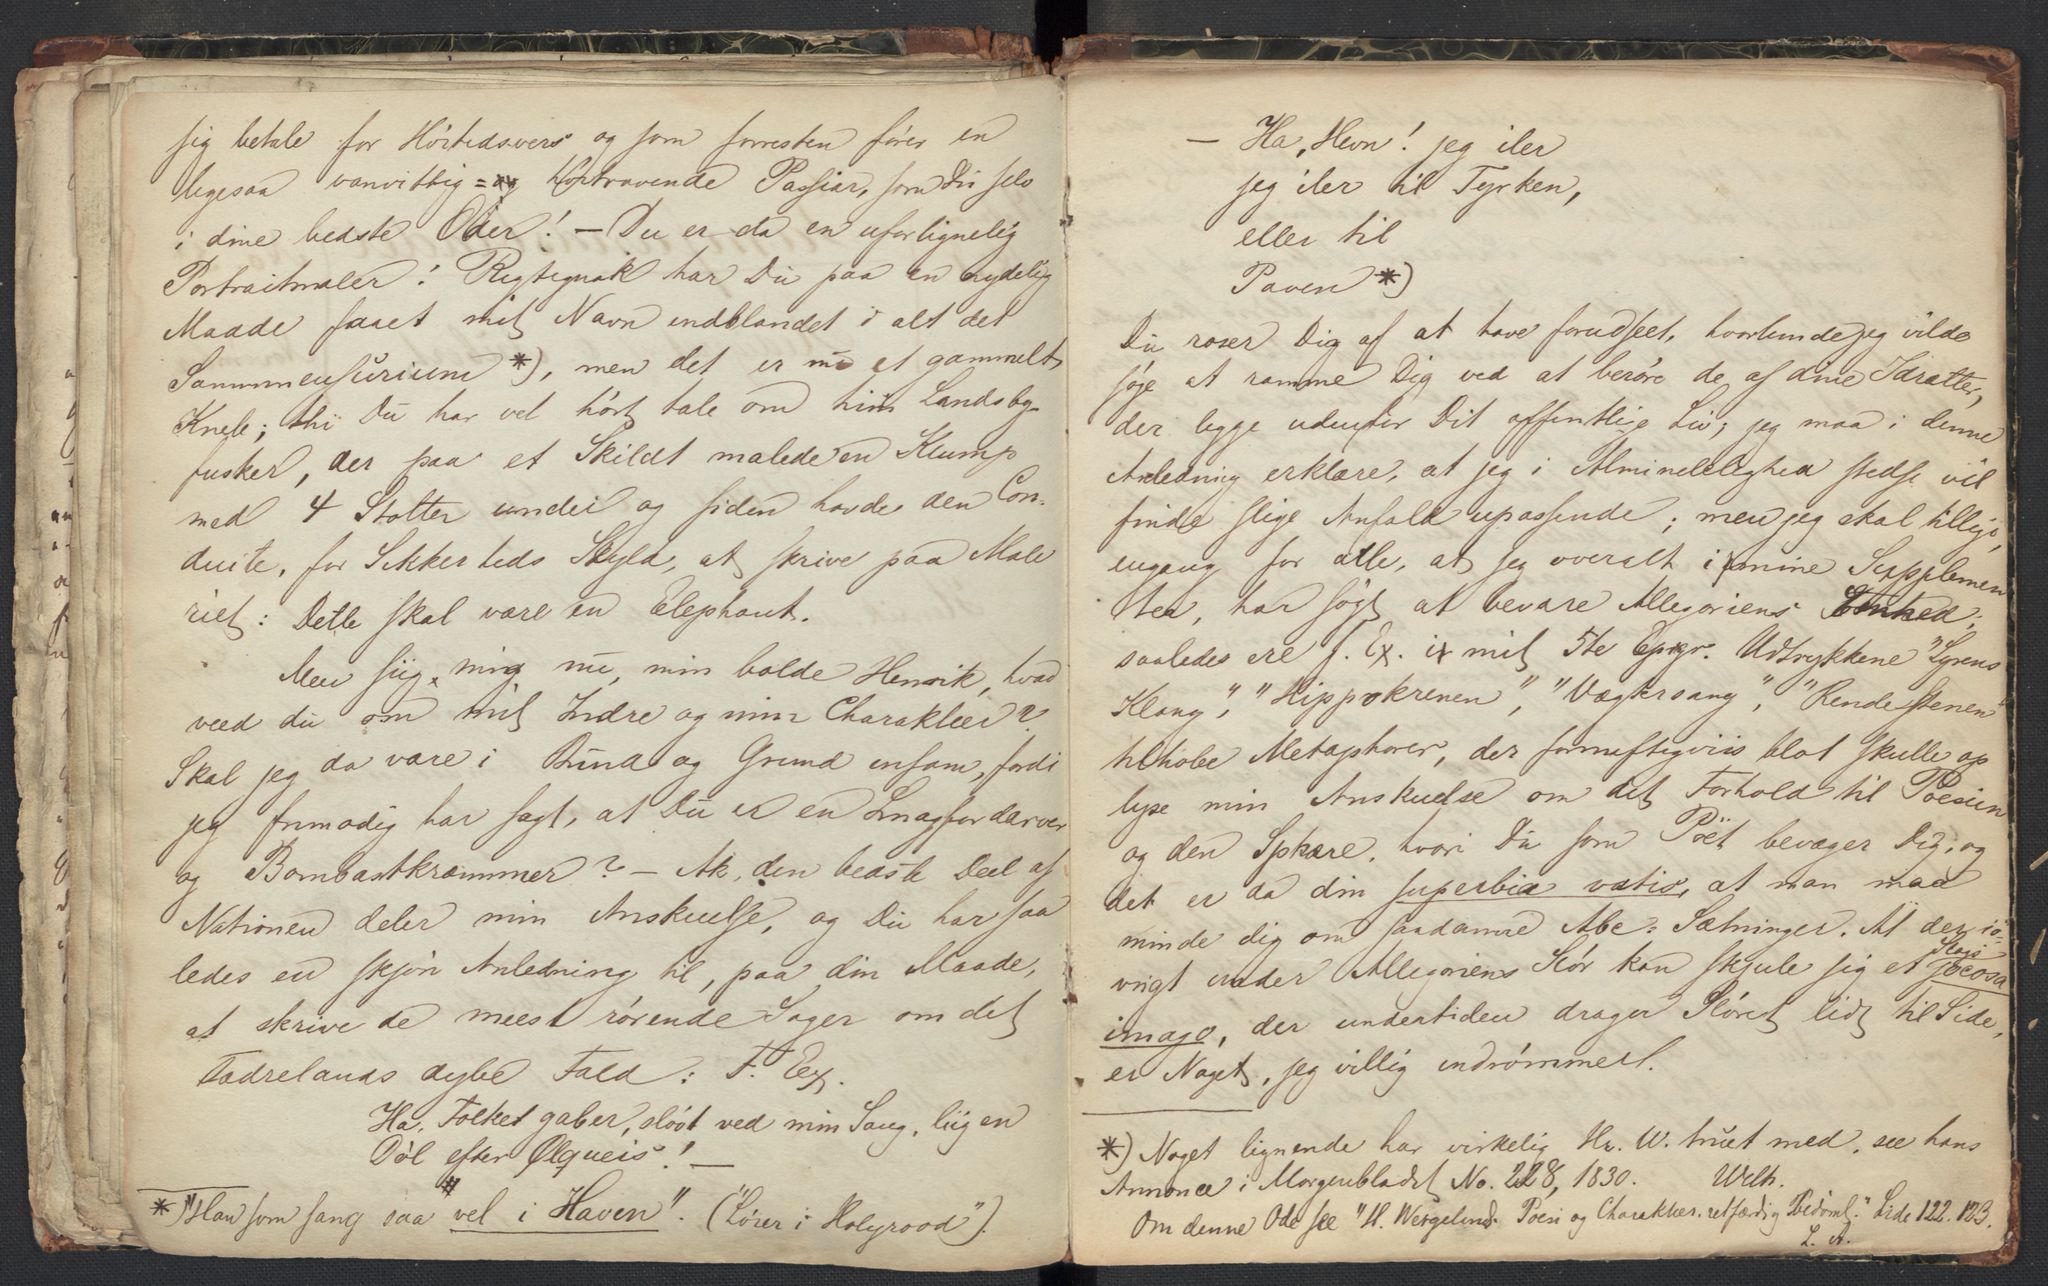 sig betale for Höitidsvers og som forresten fører en
ligesaa vanvittig= og höitravende Passiar, som Du selv
i dine bedste Oder! — Du er da en uforlignelig
Portraitmaler! Rigtignok har Du paa en nydelig
Maade faaet mit Navn indblandet i alt det
Sammensurium *), men det er nu et gammelt
Kneb; thi Du har vel hört tale om hiin Landsby-
fusker, der paa et Skildt malede en Klump
med 4 Stolter under og siden havde den Con-
duite, for Sikkerheds Skyld, at skrive paa Male
riet: Dette skal være en Elephant.
Men siig mig nu, min bolde Henrik, hvad
veed du om mit Indre og min Charakteer?
Skal jeg da være i Bund og Grund infam, fordi
jeg frimodig har sagt, at Du er en Smagfordærver
og Bombastkræmmer? — Ak, den bedste Deel af
Nationen deler min Anskuelse, og Du har saa
ledes en skjön Anledning til, paa din Maade,
at skrive de meest rörende Sager om det
Fædrelands dybe Fald: F. Ex.
Ha, Folket gaber, slövt ved min Sang, liig en
Döl efter Ölqueis! —
*) "Han som sang saa vel i Haven". ("Lörer i Holyrood").
— Ha, Hevn! jeg iler
jeg iler til Tyrken,
eller til
Paven *)
Du roser Dig af at have forudseet, hvorlunde jeg vilde
söge at ramme Dig ved at beröre de af dine Idrætter,
der ligge udenfor Dit offentlige Liv; jeg maa i denne
Anledning erklære, at jeg i Almindelighed stedse vil
finde slige Anfald upassende; men jeg skal tillige,
engang for alle, at jeg overalt i mine Supplemen
ter, har sögt at bevare Allegoriens Eenhed;
saaledes ere f. Ex. i mit 5te Epigr. Udtrykkene "Lyrens
Klang", "Hippokrenen", "Vægtersang", "Rendestenen"
tilhobe Metaphorer, der fornuftigviis blot skulle op
lyse min Anskuelse om dit Forhold til Poesien
og den Sphære, hvori Du som Poët bevæger Dig; og
det er da din superbia vatis, at man maa
minde dig om saadanne Abc-Sætninger. At der iö-
vrigt under Allegoriens Slör kan skjule sig et slags jocosa
imago, der undertiden drager Slöret lidt til Side,
er Noget, jeg villig indrömmer.
*) Noget lignende har virkelig Hr. W. truet med, see hans
Annonce i Morgenbladet No. 228, 1830. Welh.
Om denne Ode see "H. Wergelands Poesi og Charakteer. retfærdig Bedöml." Side 122. 123.
L. A.